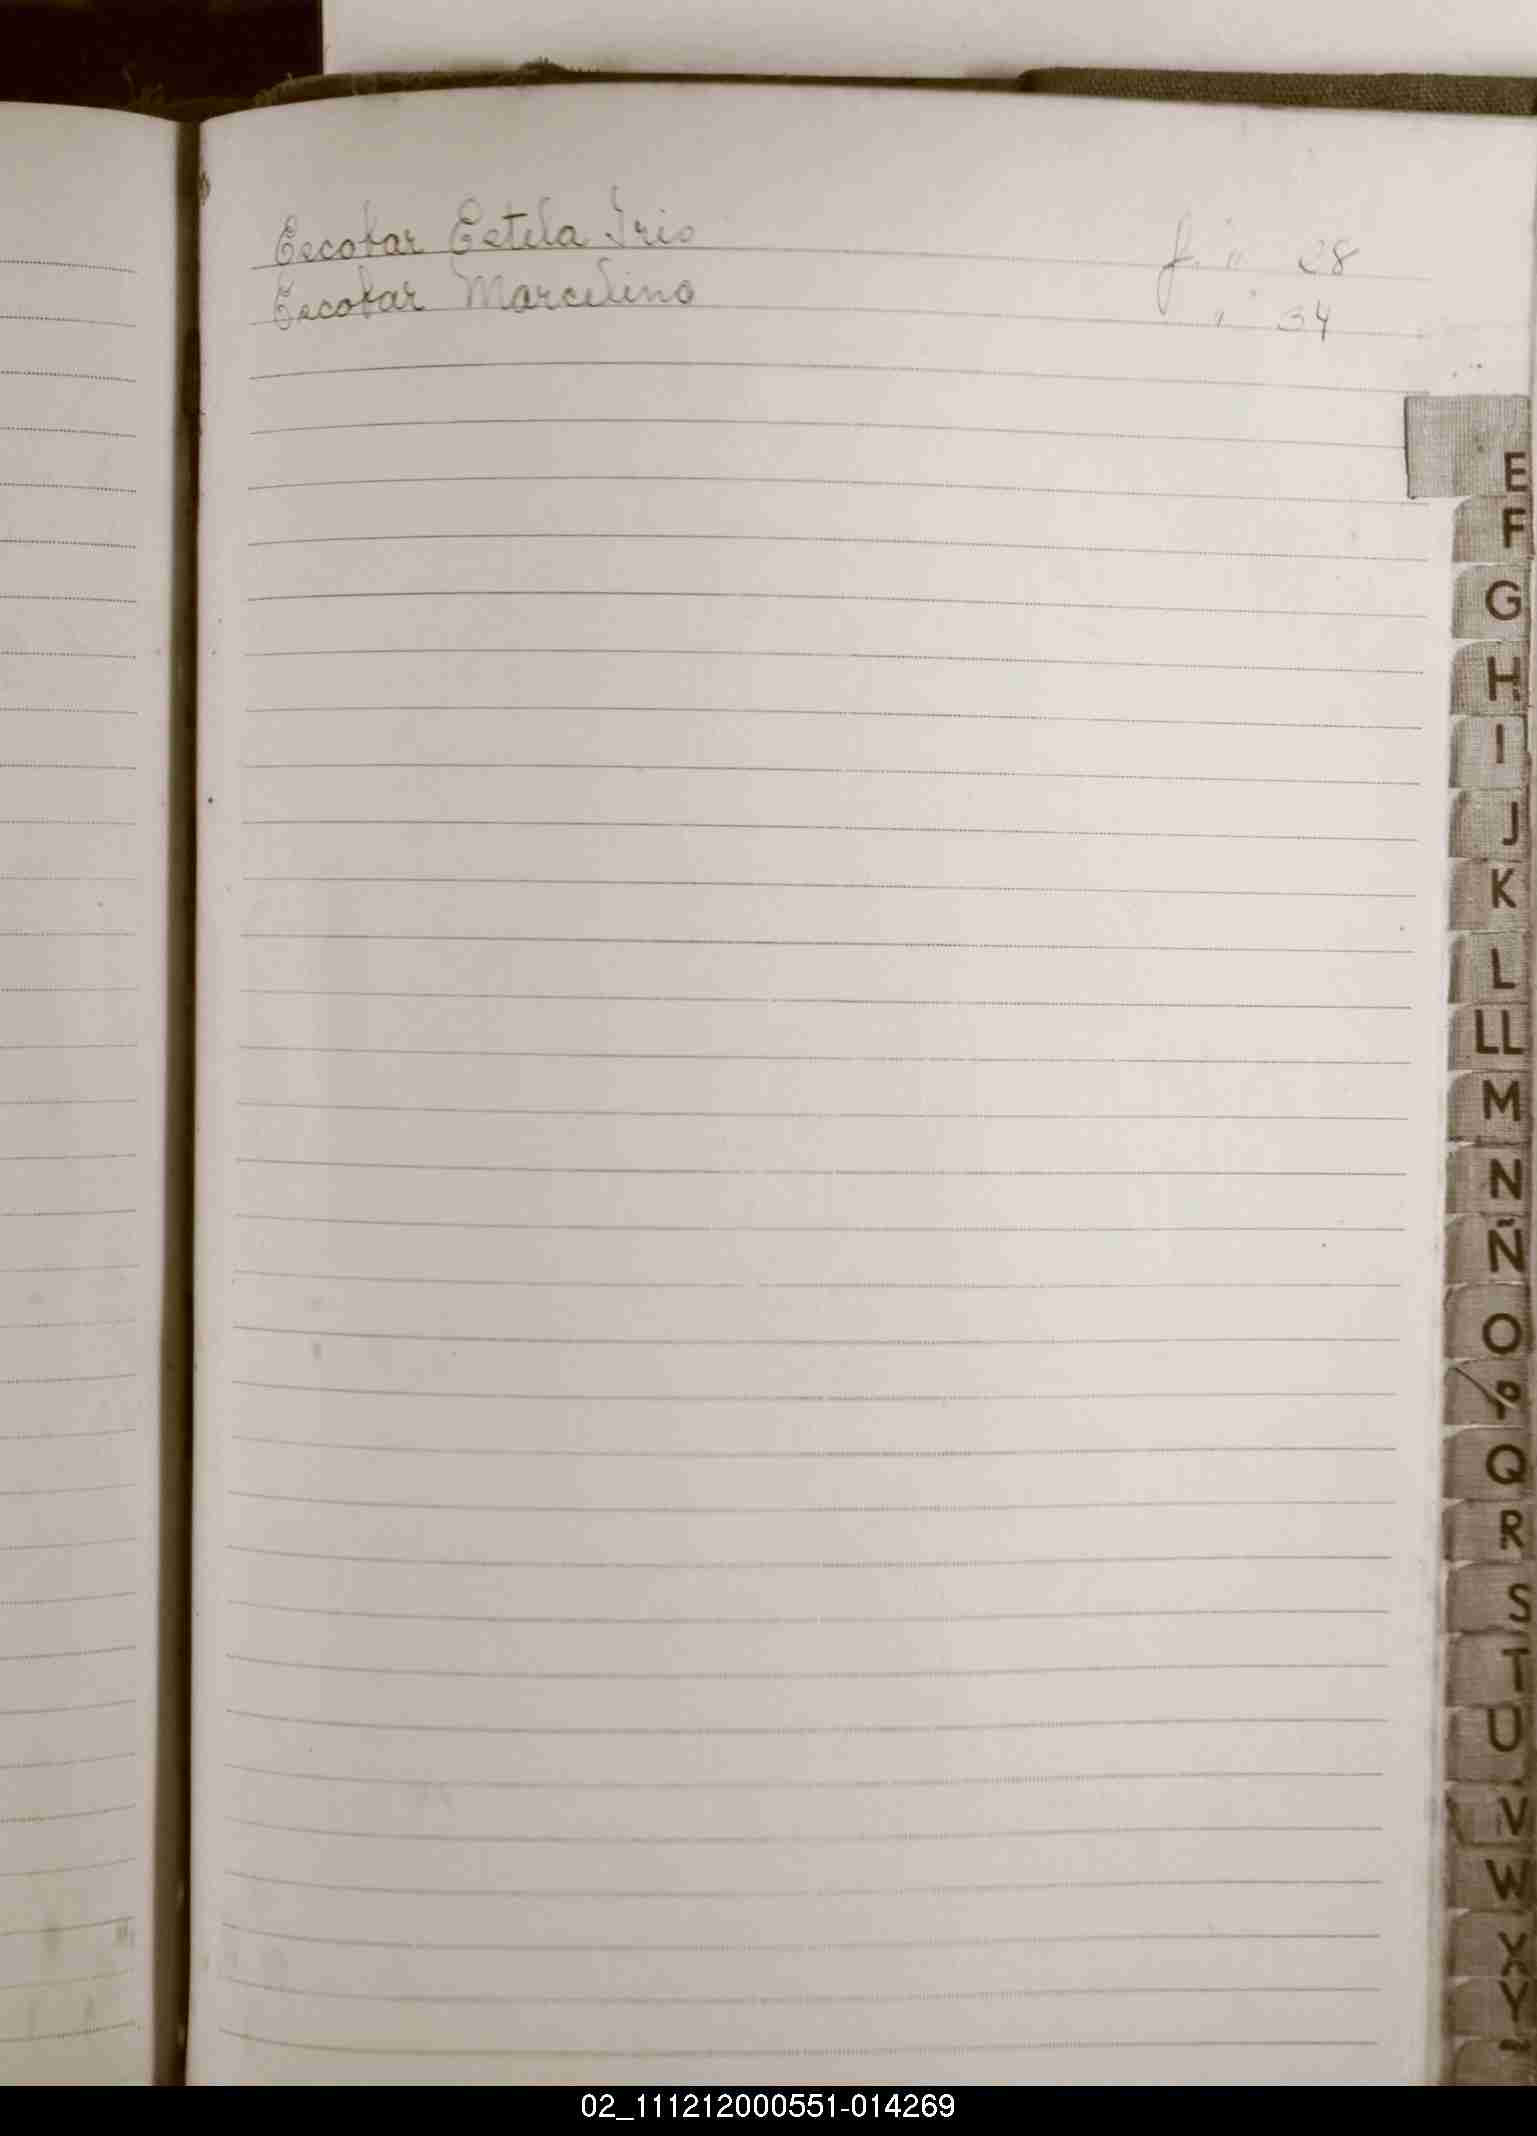 Escobar Estela Iris f. " 28
Escobar Marcelino " 34
E
F
G
H
I
J
K
L
LL
M
N
Ñ
O
P
Q
R
S
T
U
V
W
X
Y
02_111212000551-014269